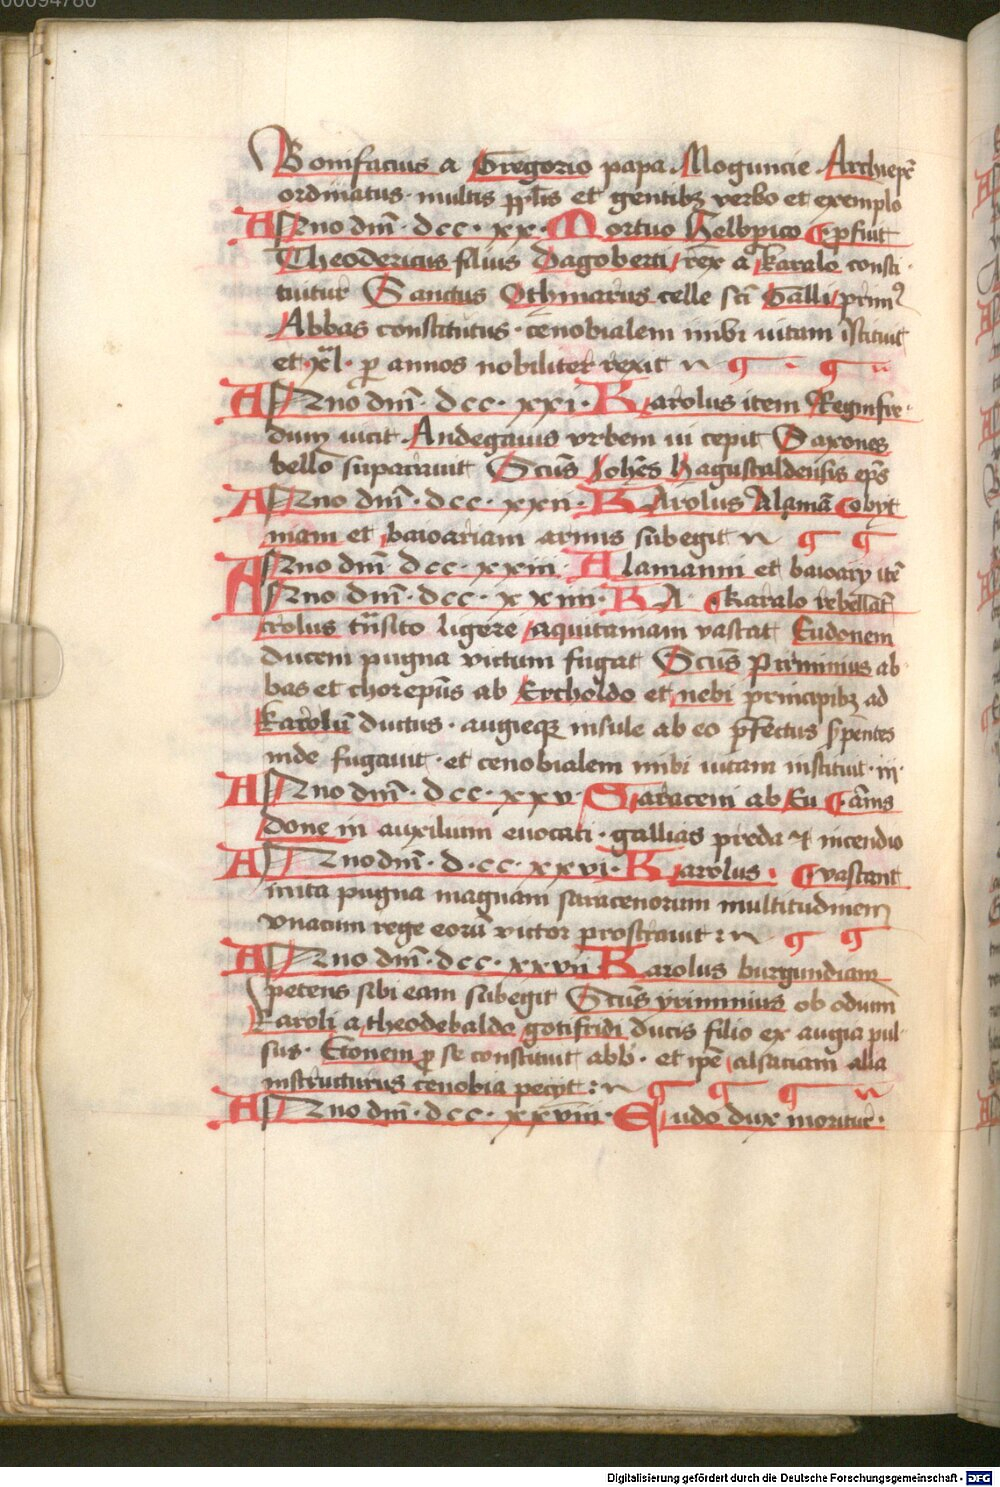 00094780
Bonifacius a Gregorio papa Moguncie Archiepc̄
ordinatus · multis ppl̄is et gentibȝ verbo et exemplo
ANno dnī · dcc · xx · Mortuo helbrico ¶ p̄fuit
Theodericus filius Dagoberti / rex a karalo consti
tuitur Sanctus Othmarus celle sct̄i Galli / primꝰ
Abbas constitutus · cenobialem inibi uitam īstituit
et xl · ꝑ annos nobiliter rexit
ANno dnī · dcc · xxi · Karolus item Reginfre
dum uicit · Andegauis vrbem ui cepit Saxones
bello supauit Scūs Johēs hagustaldensis epūs
ANno dnī · dcc · xxii · KArolus Alamā ¶ obijt
niam et baioariam armis subegit
ANno dnī dcc · xxiii · Alamanni et baioarij itē
ANno dnī · dcc · xxiiii · KA ¶ karalo rebellāt
rolus trāsito ligere / aquitaniam vastat Eudonem
ducem pugna victum fugat Scūs Pirminius ab
bas et chorepūs ab Ercholdo et nebi principibȝ ad
karolū ductus · augieqȝ insule ab eo p̄fectus s̄pentes
inde fugauit · et cenobialem inibi uitam instituit
ANno dnī · dcc · xxv · Saraceni ab Eu ¶ am̄is
done in auxilium euocati · gallias preda et incendio
ANno dnī · dcc · xxvi · Karolus · ¶ vastant
inita pugna magnam saracenorum multitudinem
vnacum rege eorū victor prostrauit
ANno dnī · dcc · xxvii Karolus burgundiam
petens sibi eam subegit Scūs pirminius ob odium
karoli a theodebaldo gotifridi ducis filio ex augia pul
sus · Etonem ꝓ se constituit abb̄ · et ip̄e alsatiam alia
instructurus cenobia pecijt
ANno dnī · dcc · xxviii · Eudo dux moritur ·
Digitalisierung gefördert durch die Deutsche Forschungsgemeinschaft - DFG